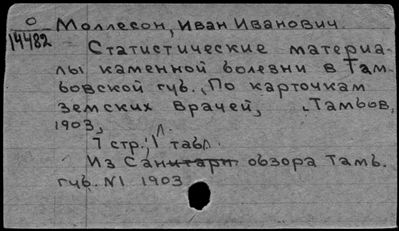 О Моллесон, Иван Иванович
14482
Статистические материа-
лы каменной болезни в Там-
бовской губ. По карточкам
земских врачей, Тамбов,
1903,
л.
7 стр., 1 табл.
Из Санитарн обзора Тамб.
губ. N1 1903